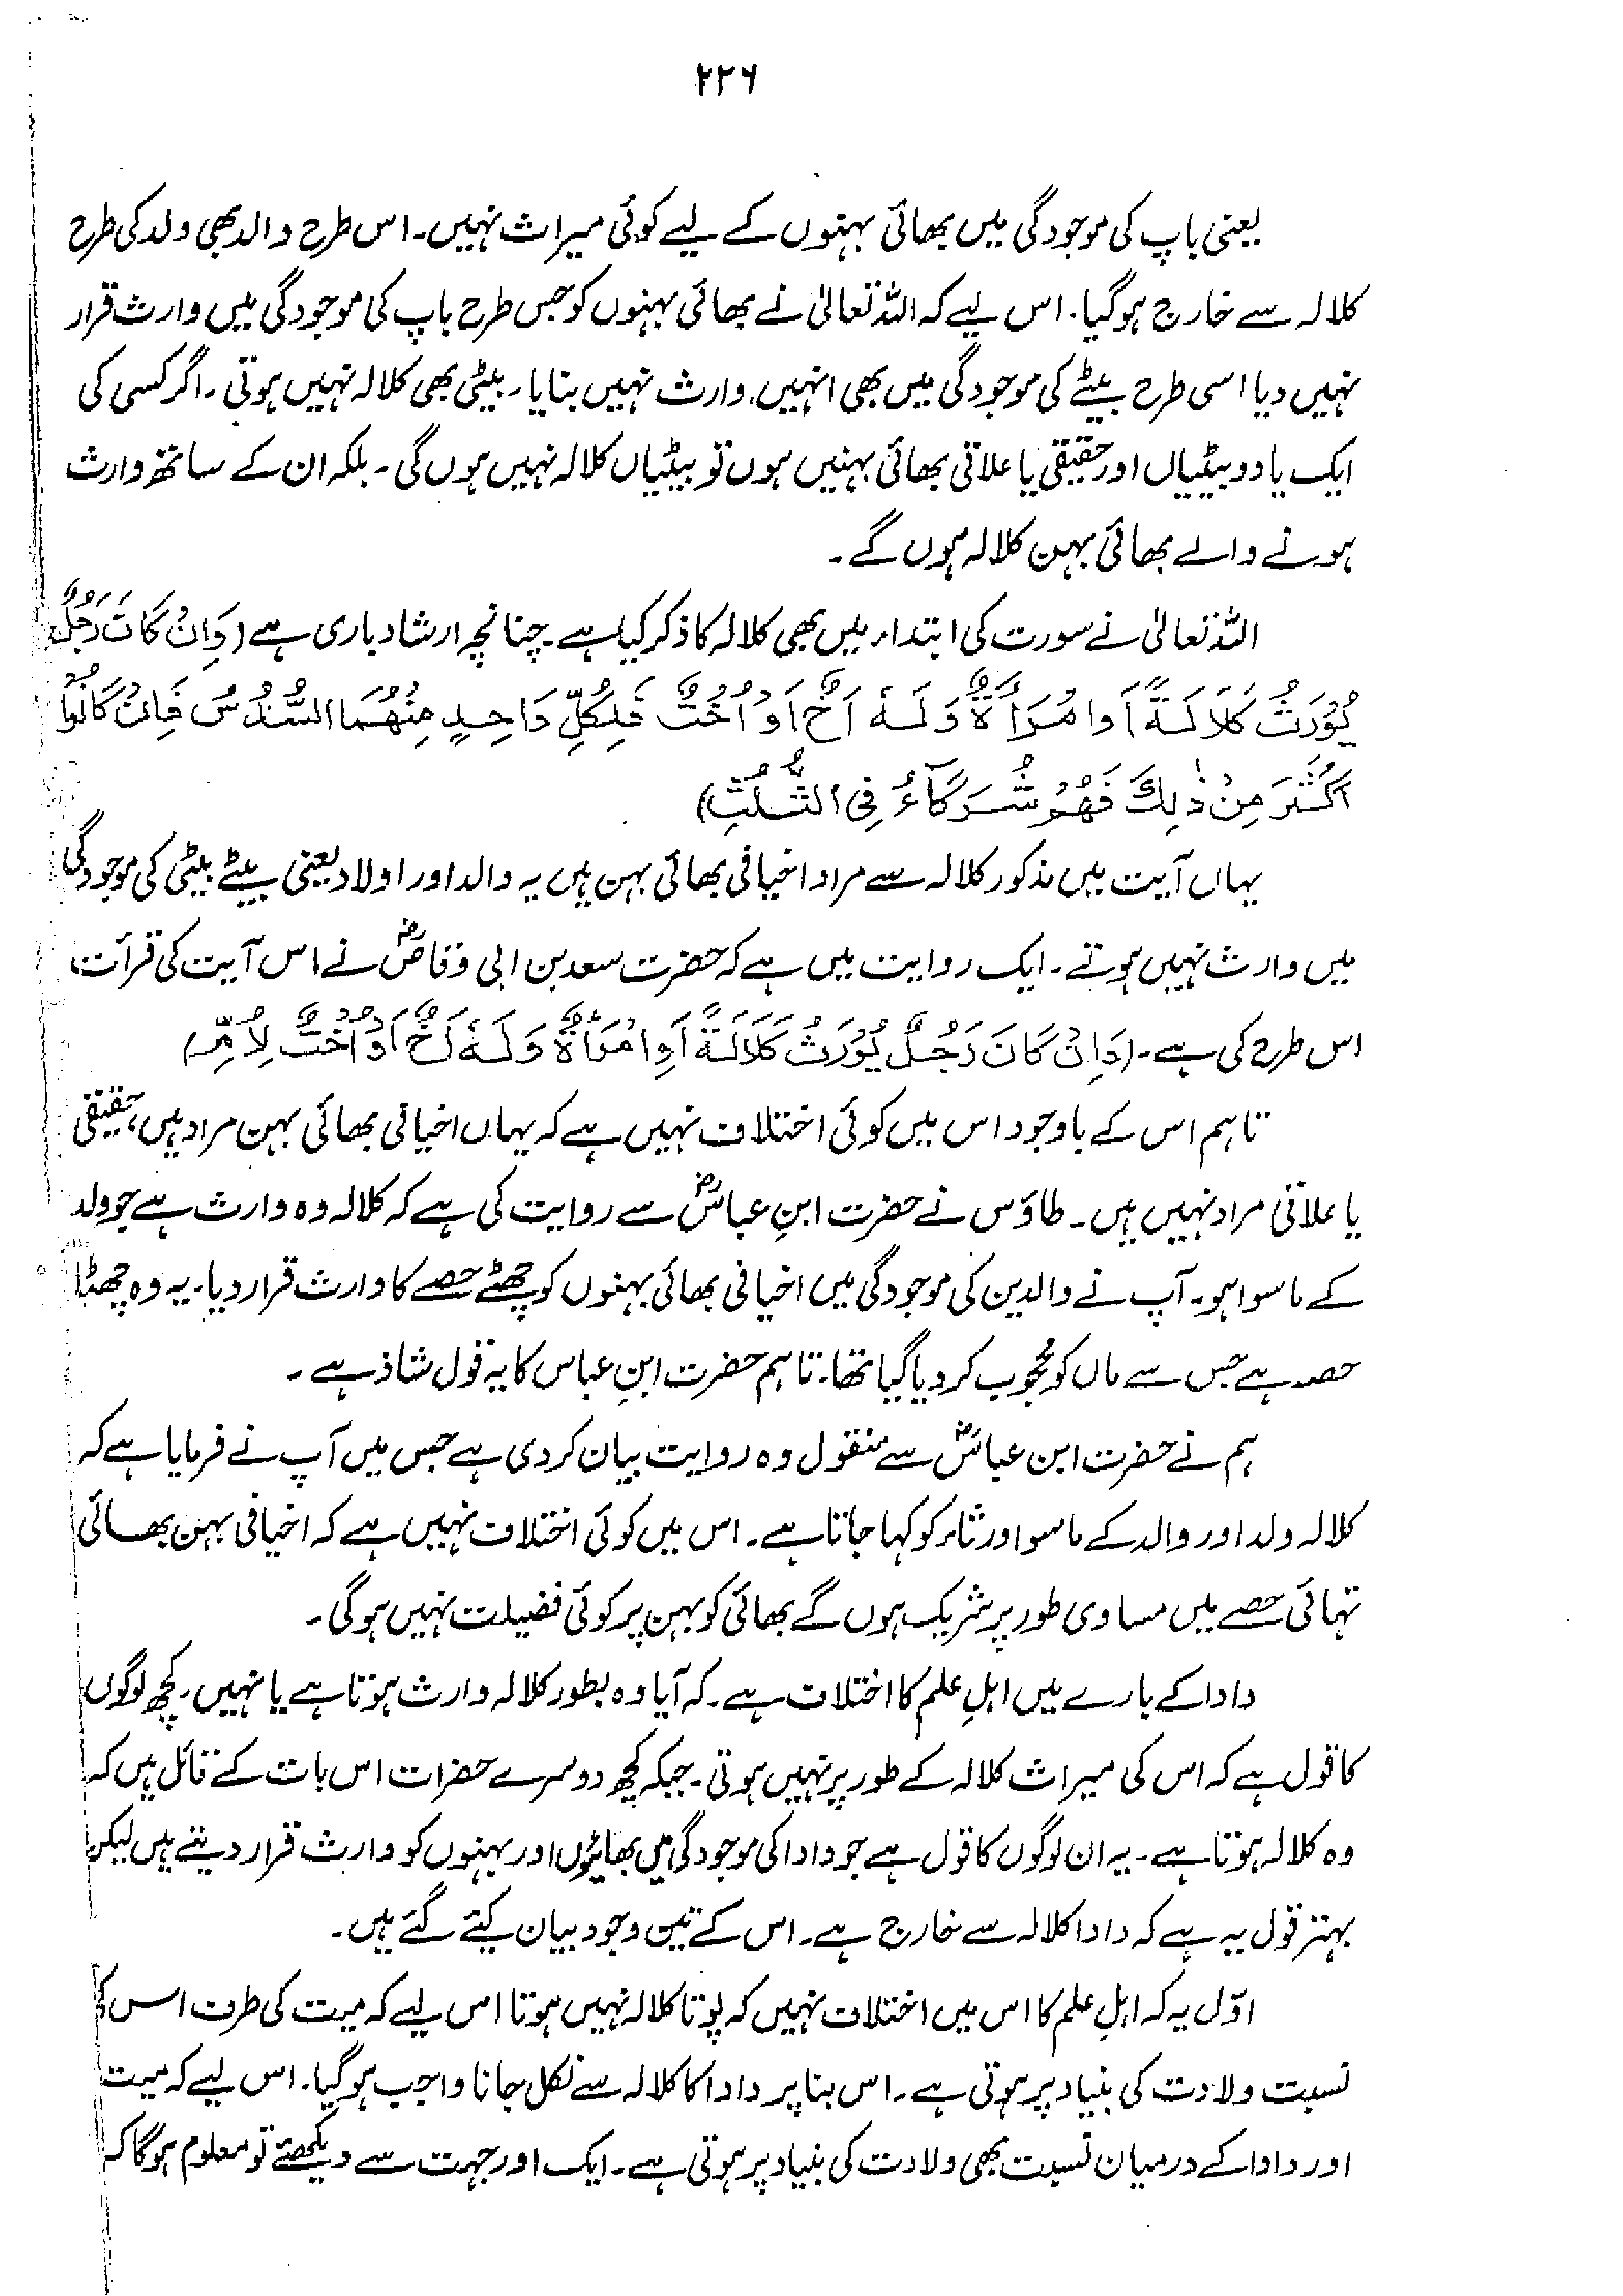 ۲۲۶
یعنی باپ کی موجودگی میں بھائی بہنوں کے لیے کوئی میراث نہیں۔ اس طرح والد بھی ولد کی طرح
کلالہ سے خارج ہوگیا۔ اس لیے کہ اللہ تعالیٰ نے بھائی بہنوں کو جس طرح باپ کی موجودگی میں وارث قرار
نہیں دیا اسی طرح بیٹے کی موجودگی میں بھی انہیں وارث نہیں بنایا۔ بیٹی بھی کلالہ نہیں ہوتی۔ اگر کسی کی
ایک یا دو بیٹیاں اور حقیقی یا علاتی بھائی بہنیں ہوں تو بیٹیاں کلالہ نہیں ہوں گی۔ بلکہ ان کے ساتھ وارث
ہونے والے بھائی بہن کلالہ ہوں گے۔
اللہ تعالیٰ نے سورت کی ابتداء میں بھی کلالہ کا ذکر کیا ہے۔ چنانچہ ارشاد باری ہے (وَاِنْ کَانَ رَجُلٌ
یُّوْرَثُ کَلَالَۃً اَوِامْرَأَۃٌ وَلَہٗ اَخٌ اَوْ اُخْتٌ فَلِکُلِّ وَاحِدٍ مِنْہُمَا السُّدُسُ فَاِنْ کَانُوْا
اَکْثَرَ مِنْ ذٰلِکَ فَہُمْ شُرَکَآءُ فِی الثُّلُثِ)
یہاں آیت میں مذکور کلالہ سے مراد اخیافی بھائی بہن ہیں یہ والد اور اولاد یعنی بیٹے بیٹی کی موجودگی
میں وارث نہیں ہوتے۔ ایک روایت میں ہے کہ حضرت سعد بن ابی وقاصؓ نے اس آیت کی قرأت
اس طرح کی ہے۔ (وَاِنْ کَانَ رَجُلٌ یُوْرَثُ کَلَالَۃً اَوِامْرَأَۃٌ وَلَہٗ اَخٌ اَوْ اُخْتٌ لِاُمٍّ)
تاہم اس کے باوجود اس میں کوئی اختلاف نہیں ہے کہ یہاں اخیافی بھائی بہن مراد ہیں، حقیقی
یا علاتی مراد نہیں ہیں۔ طاؤس نے حضرت ابنِ عباسؓ سے روایت کی ہے کہ کلالہ وہ وارث ہے جو ولد
کے ماسوا ہو۔ آپ نے والدین کی موجودگی میں اخیافی بھائی بہنوں کو چھٹے حصے کا وارث قرار دیا۔ یہ وہ چھٹا
حصہ ہے جس سے ماں کو محجوب کردیا گیا تھا۔ تاہم حضرت ابنِ عباس کا یہ قول شاذ ہے۔
ہم نے حضرت ابن عباسؓ سے منقول وہ روایت بیان کردی ہے جس میں آپ نے فرمایا ہے کہ
کلالہ ولد اور والد کے ماسوا ورثاء کو کہا جاتا ہے۔ اس میں کوئی اختلاف نہیں ہے کہ اخیافی بہن بھائی
تہائی حصے میں مساوی طور پر شریک ہوں گے بھائی کو بہن پر کوئی فضیلت نہیں ہوگی۔
دادا کے بارے میں اہلِ علم کا اختلاف ہے۔ کہ آیا وہ بطور کلالہ وارث ہوتا ہے یا نہیں۔ کچھ لوگوں
کا قول ہے کہ اس کی میراث کلالہ کے طور پر نہیں ہوتی۔ جبکہ کچھ دوسرے حضرات اس بات کے قائل ہیں کہ
وہ کلالہ ہوتا ہے۔ یہ ان لوگوں کا قول ہے جو دادا کی موجودگی میں بھائیوں اور بہنوں کو وارث قرار دیتے ہیں لیکن
بہتر قول یہ ہے کہ دادا کلالہ سے خارج ہے۔ اس کے تین وجود بیان کیئے گئے ہیں۔
اوّل یہ کہ اہلِ علم کا اس میں اختلاف نہیں کہ پوتا کلالہ نہیں ہوتا اس لیے کہ میت کی طرف اس کی
نسبت ولادت کی بنیاد پر ہوتی ہے۔ اس بنا پر دادا کا کلالہ سے نکل جانا واجب ہوگیا۔ اس لیے کہ میت
اور دادا کے درمیان نسبت بھی ولادت کی بنیاد پر ہوتی ہے۔ ایک اور جہت سے دیکھئے تو معلوم ہوگا کہ